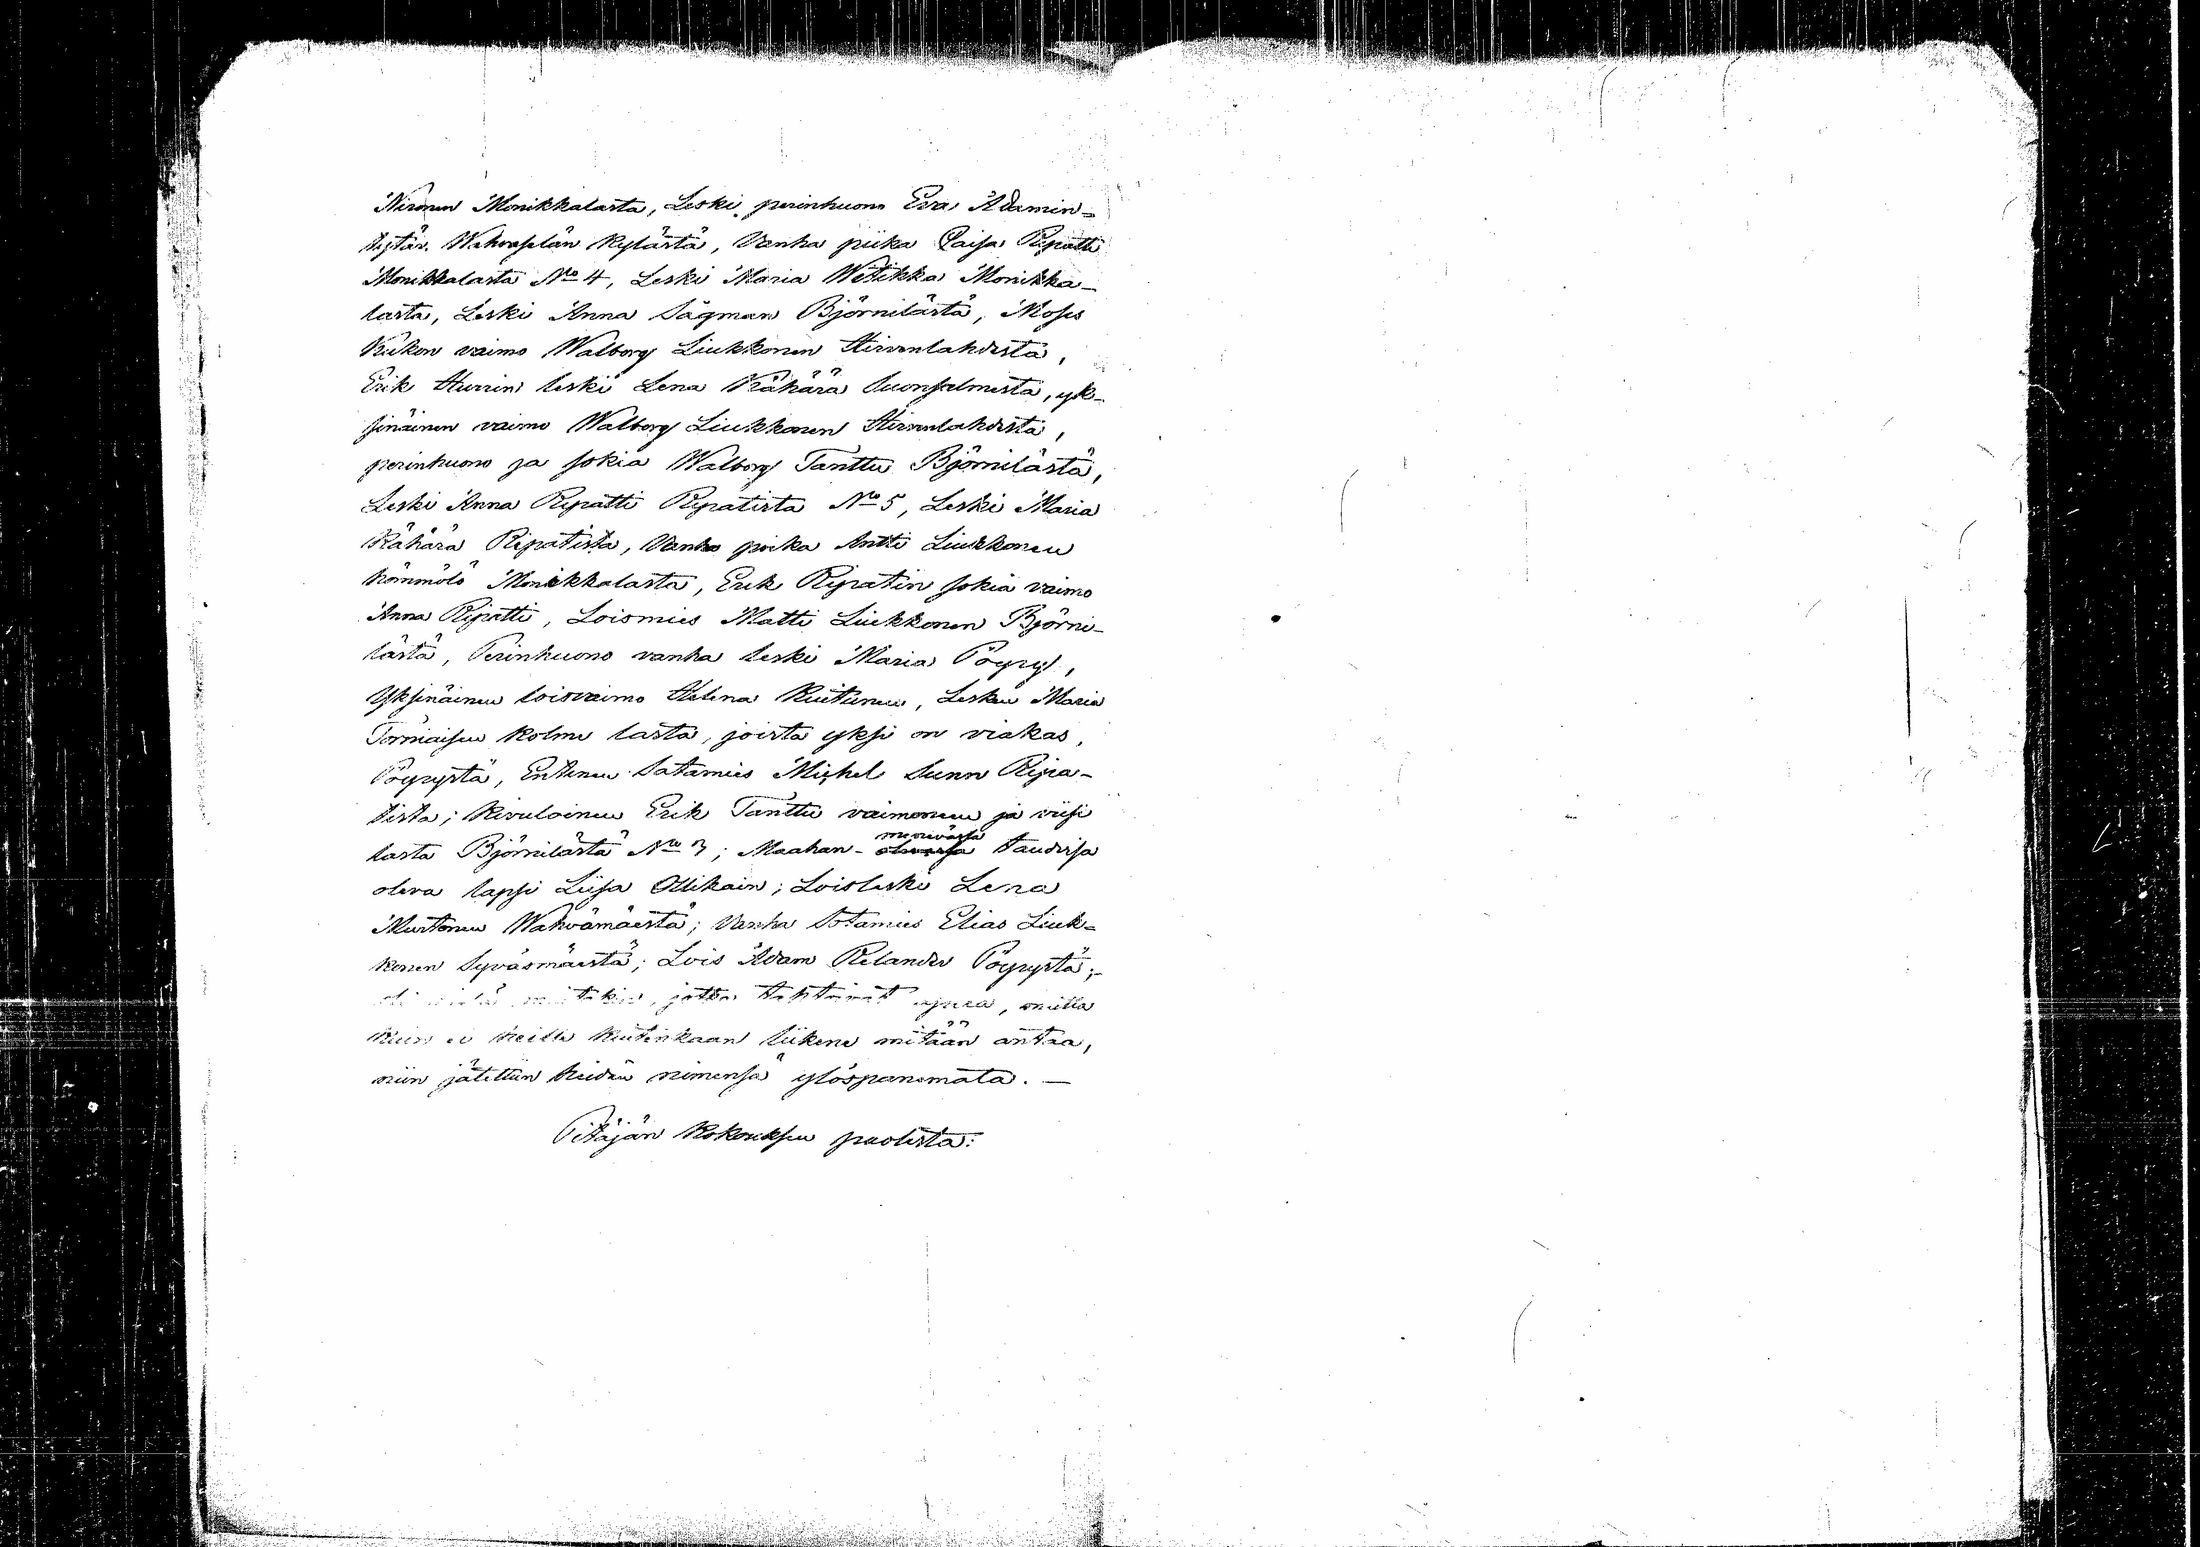 Nironen Monikkalasta, Leski perinhuono Eva Adamin-
tytär Wahvaselän kylästä, Vanha piika Caisa Ripatti
Monikkalasta No 4, Leski Maria Wetikka Monikka-
lasta, Leski Anna Sägman Björnilästä, Moses
Kukon vaimo Walborg Liukkonen Hirvenlahdesta,
Erik Hurrin leski Lena Kähärä Suonsalmesta, yk-
sinäinen vaimo Walborg Liukkonen Hirvenlahdesta,
perinhuono ja sokia Walborg Tanttu Björnilästä,
Leski Anna Ripatti Ripatista No 5, Leski Maria
Kähärä Ripatista, Vanha poika Antti Liukkonen
Monikkalasta, Erik Ripatin sokia vaimo
Anna Ripatti, Loismies Matti Liukkonen Björni-
lästä, Perinhuono vanha leski Maria Pöyry,
Yksinäinen loisvaimo Helena Kuitunen, Lesken Maria
Törmäisen kolme lasta, joista yksi on viakas,
Pöyrystä, Entinen Sotamies Michel Sunn Ripa-
tista; Kivuloinen Erik Tanttu vaimoneen ja viisi
lasta Björnilästä No 3; Maahan- menevässä taudissa
oleva lapsi Liisa Ollikain; Loisleski Lena
Murtonen Wahvamäestä; Vanha Sotamies Elias Liuk-
konen Syväsmäestä; Lois Adam Relander Pöyrystä;
jotka apua, mutta
kuin ei heille kuitenkaan liikene mitään antaa,
niin jätettiin heidän nimensä ylöspanemata. —
Pitäjän Kokouksen puolesta: